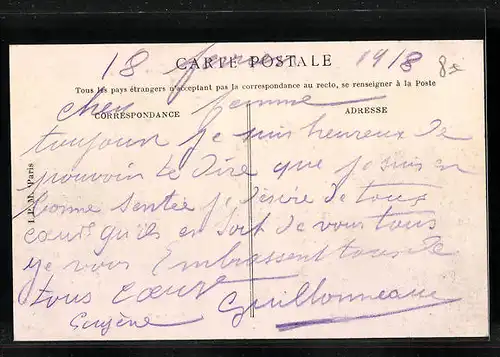 18 1918 8 x
CARTE POSTALE
Tous les pays étrangers n'acceptant pas la correspondance au recto, se renseigner à la Poste
CORRESPONDANCE
ADRESSE
cher femme
toujour je suis heureux de
pouvoir te dire que je suis en
bonne sentée je désire de tous
cœur qu'ils en soit de vous tous
je vous Embrassent tous de
tous cœur
Guillonneau
Eugène
Paris